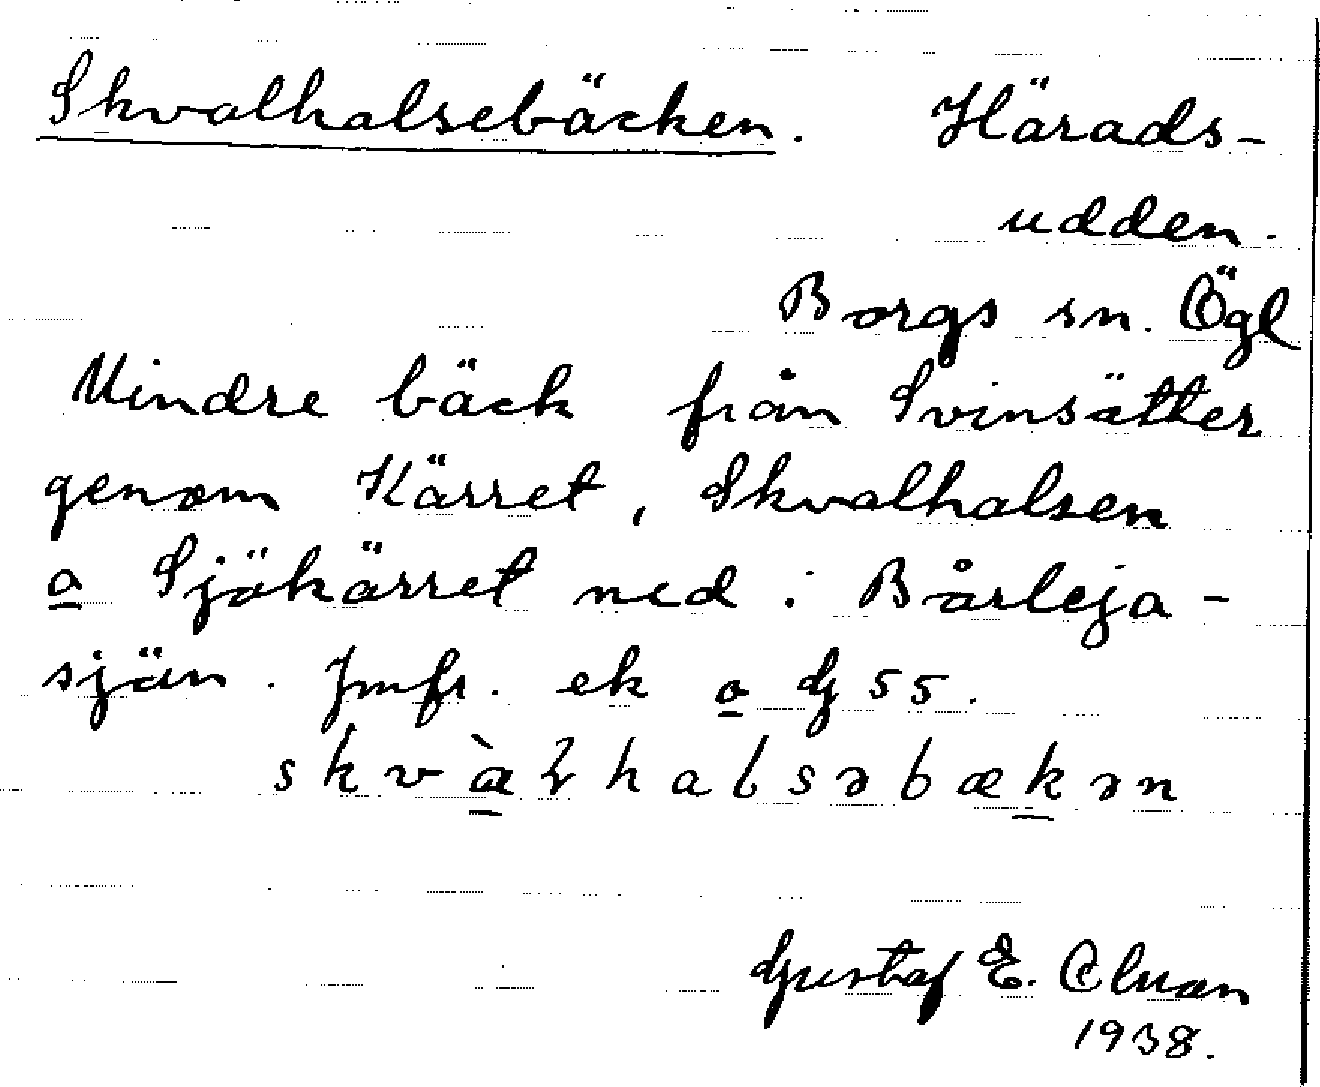 Skvalhalsebäcken. Härads-
udden.
Borgs sn. Ögl
Mindre bäck från Svinsätter
genom Kärret, Skvalhalsen
o Sjökärret ned i Bårleja-
sjön. Jmfr. ek o G 55.
skvàlhalsəbækən
Gustaf E.
1938.